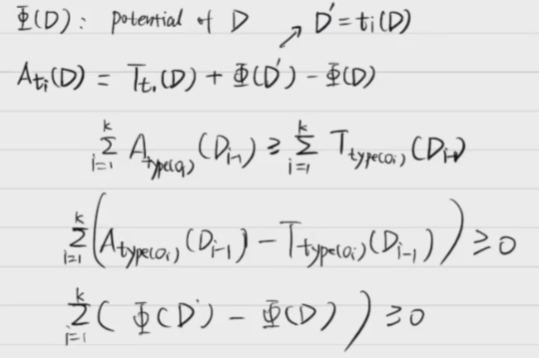 Φ(D): potential of D ↗ D' = ti(D)
A_{ti}(D) = T_{ti}(D) + Φ(D') - Φ(D)
∑_{i=1}^{k} A_{type(oi)}(D_{i-1}) ≥ ∑_{i=1}^{k} T_{type(oi)}(D_{i-1})
∑_{i=1}^{k} (A_{type(oi)}(D_{i-1}) - T_{type(oi)}(D_{i-1})) ≥ 0
∑_{i=1}^{k} (Φ(D') - Φ(D)) ≥ 0